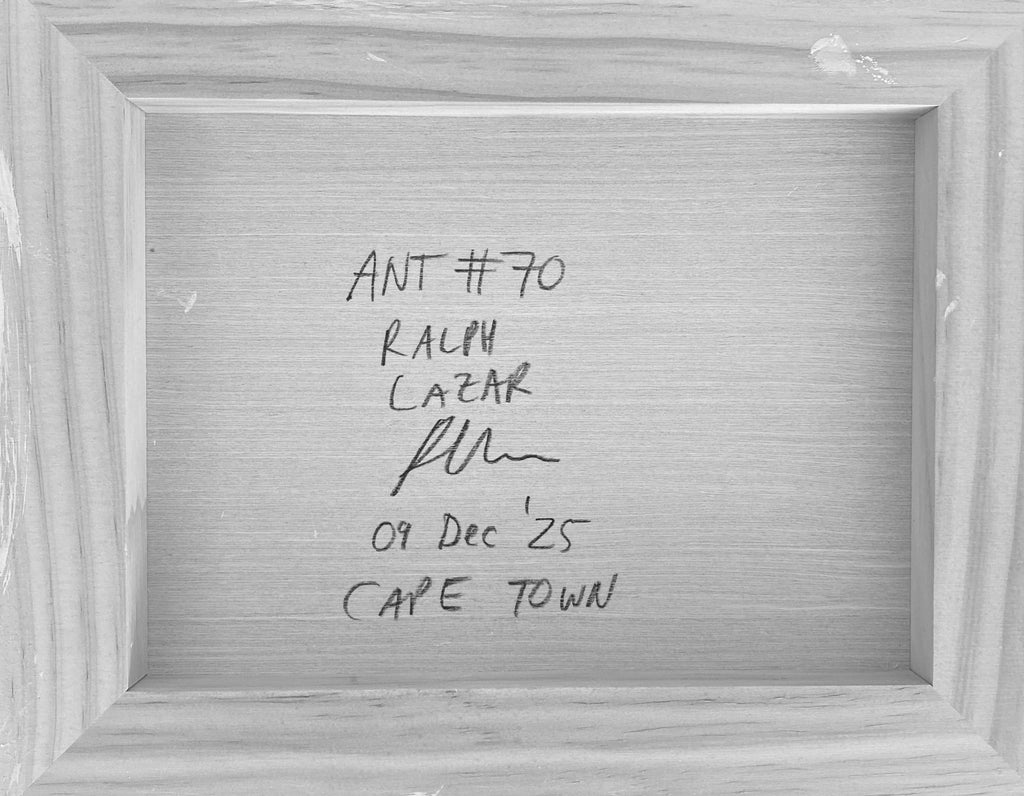 ANT #70
RALPH
LAZAR
09 Dec '25
CAPE TOWN